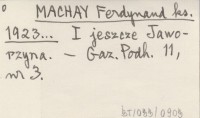 MACHAY Ferdynand ks.
1923... I jeszcze Jawo-
rzyna. – Gaz. Podh. 11,
nr 3.